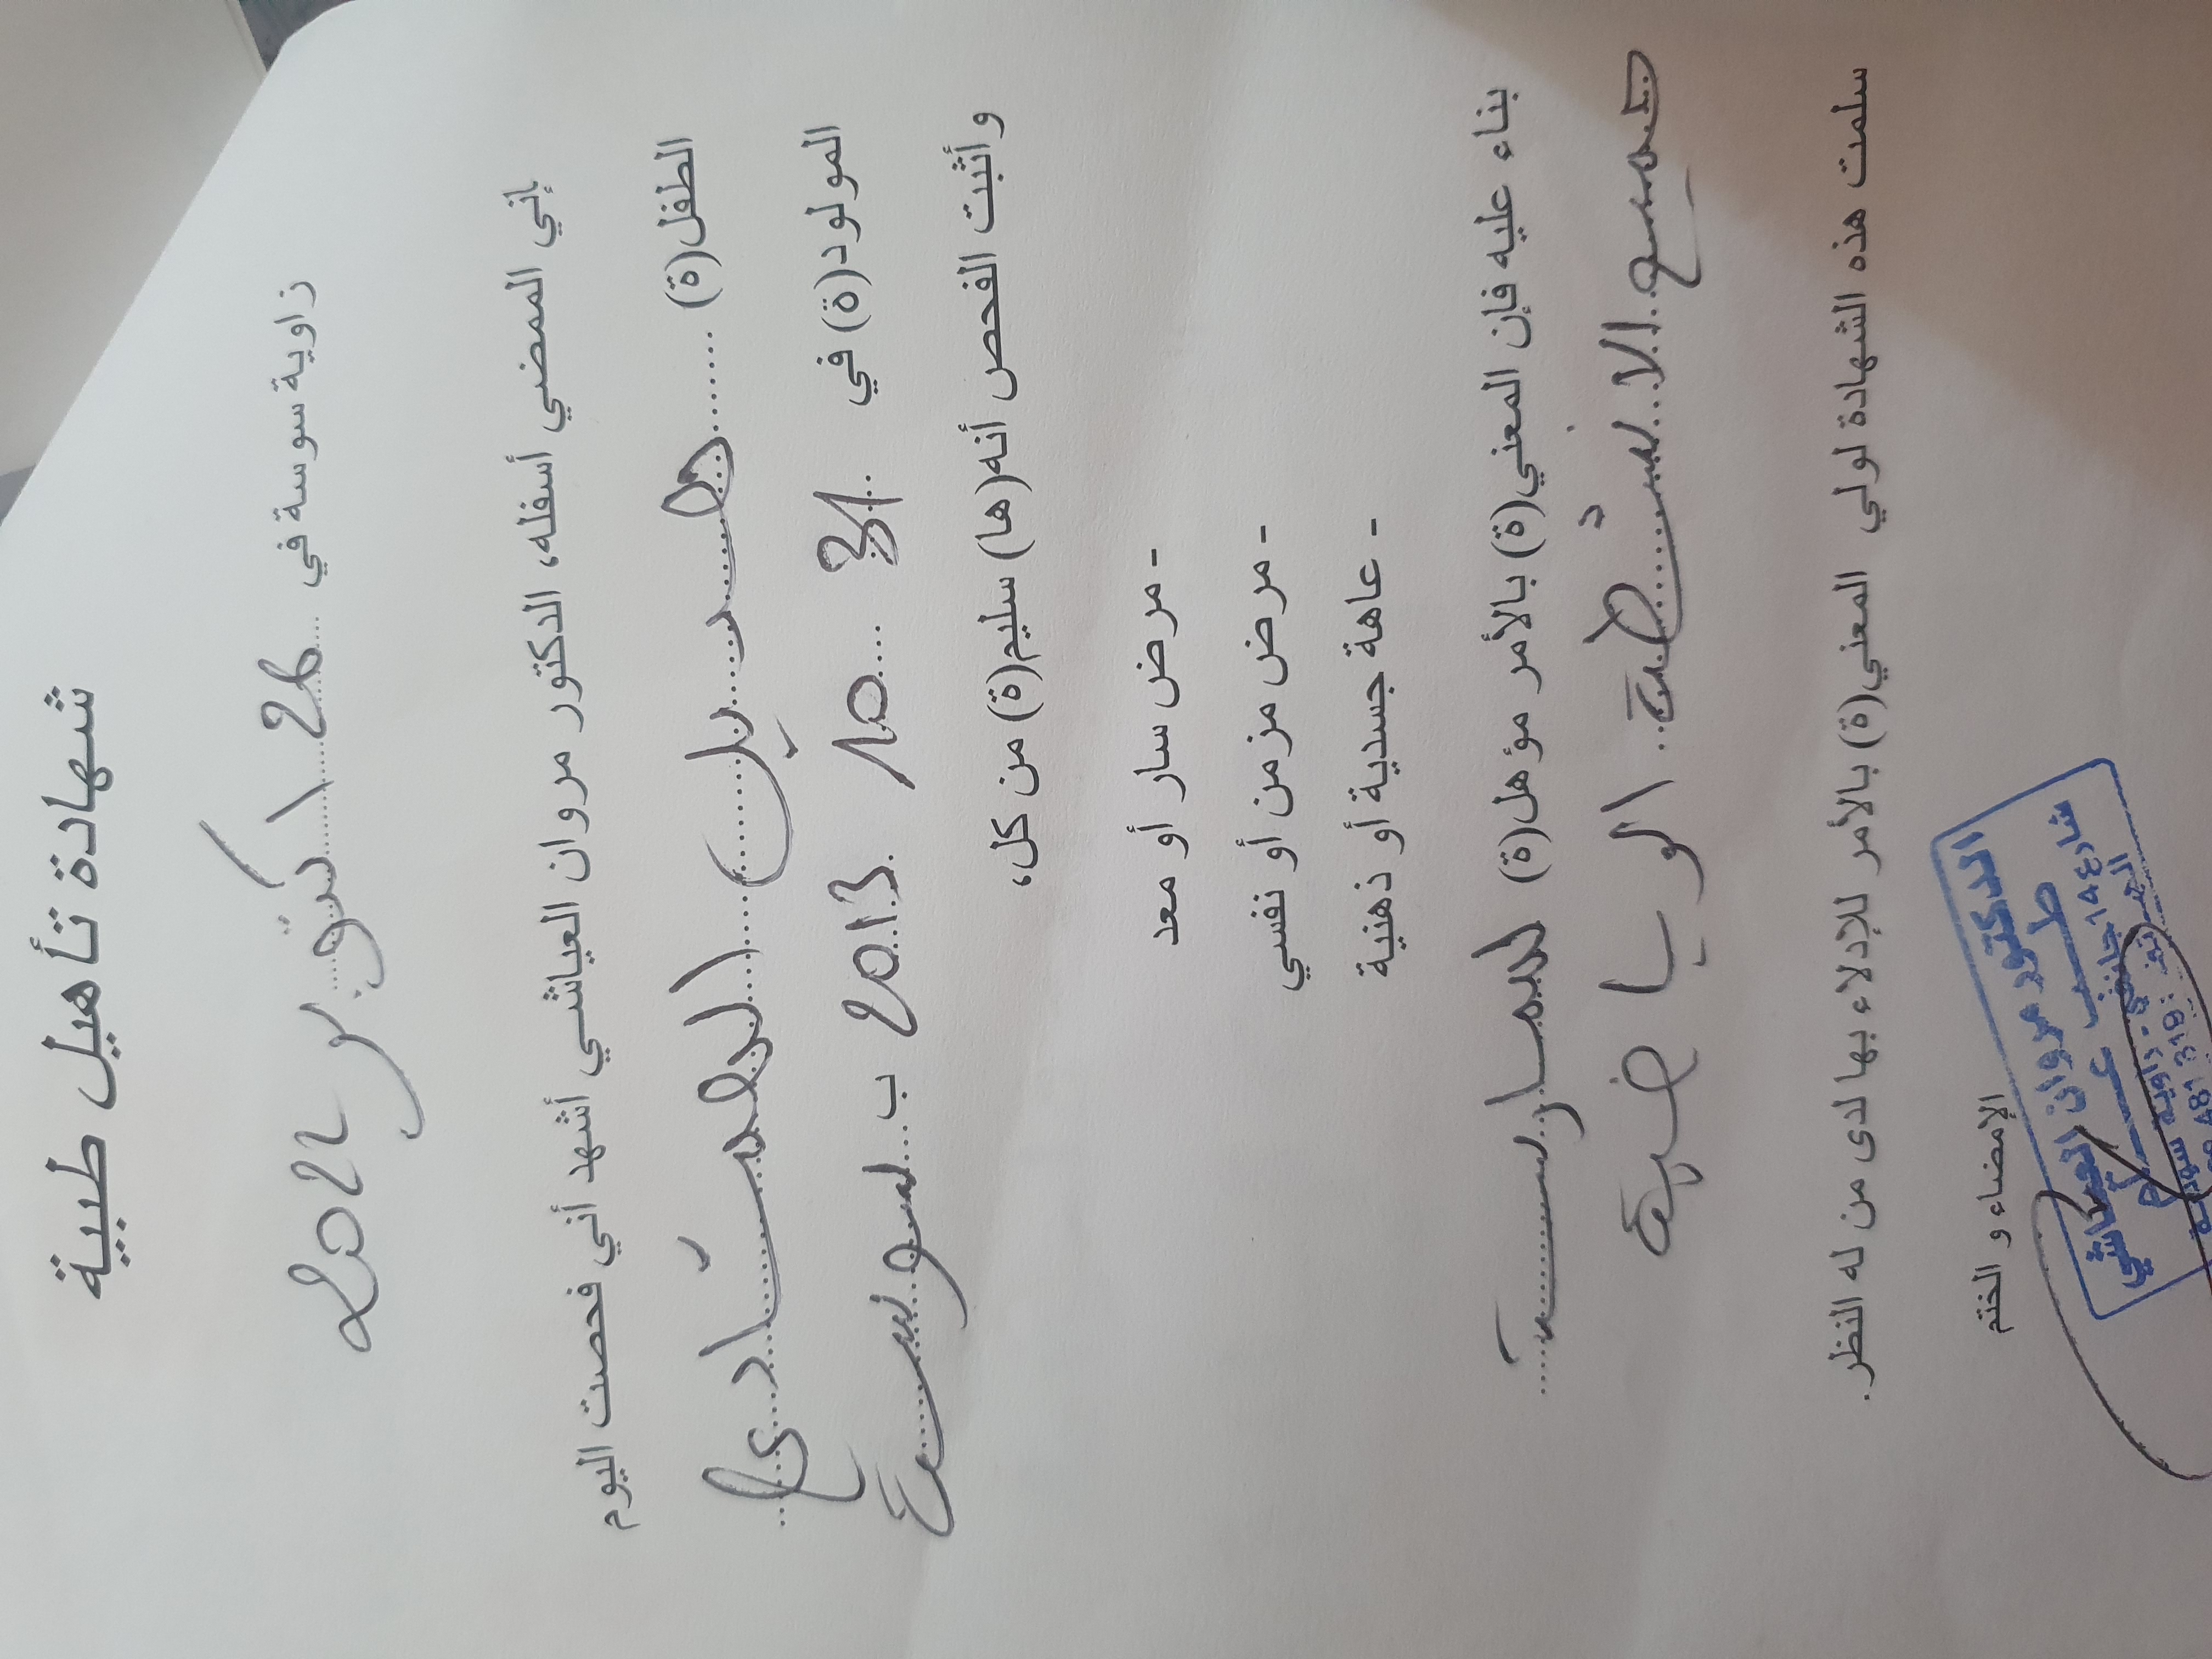 شهادة تأهيل طبية
زاوية سوسة في 26 اكتوبر 2022
إني الممضي أسفله، الدكتور مروان العياشي أشهد أني فحصت اليوم
الطفل(ة)
المولود(ة) في 31 10 2013 ب سوسة
وأثبت الفحص أنه(ها) سليم(ة) من كل،
- مرض سار أو معد
- مرض مزمن أو نفسي
- عاهة جسدية أو ذهنية
بناء عليه فإن المعني(ة) بالأمر مؤهل(ة) لممارسة
جميع الانشطة الرياضية
سلمت هذه الشهادة لولي المعني(ة) بالأمر للإدلاء بها لدى من له النظر.
الإمضاء و الختم
الدكتور مروان العياشي
طب عــــام
شارع 14 جانفي - زاوية سوسة